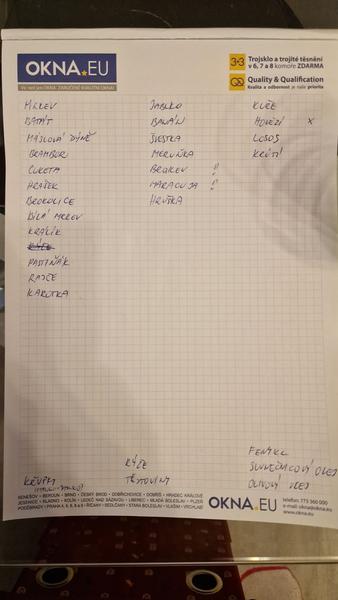 OKNA.EU
Víc než jen OKNA. ZARUČENĚ KVALITNÍ OKNA!
3+3 Trojsklo a trojité těsnění
v 6, 7 a 8 komoře ZDARMA
Quality & Qualification
Kvalita a odbornost je naše priorita
MRKEV
BATÁT
MÁSLOVÁ DÝNĚ
BRAMBORI
CUKETA
HRÁŠEK
BROKOLICE
BÍLÁ MRKEV
KRÁLÍK
RÝŽE
PASTIŇÁK
RAJČE
KAROTKA
JABLKO
BANÁN
ŠVESTKA
MERUŇKA
BROSKEV !!
MARACUJA !!
HRUŠKA
KUŘE
HOVĚZÍ X
LOSOS
KRŮTÍ
RÝŽE
TĚSTOVINY
FENYKL
SLUNEČNICOVÝ OLEJ
OLIVOVÝ OLEJ
BENEŠOV • BEROUN • BRNO • ČESKÝ BROD • DOBŘICHOVICE • DOBŘÍŠ • HRADEC KRÁLOVÉ
JESENICE • KLADNO • KOLÍN • LEDEČ NAD SÁZAVOU • LIBEREC • MLADÁ BOLESLAV • PLZEŇ
PODĚBRADY • PRAHA 4, 5, 6, 8 a 9 • ŘÍČANY • SEDLČANY • STARÁ BOLESLAV • VLAŠIM • VRCHLABÍ
OKNA.EU
telefon: 773 360 000
e-mail: okna@okna.eu
www.okna.eu